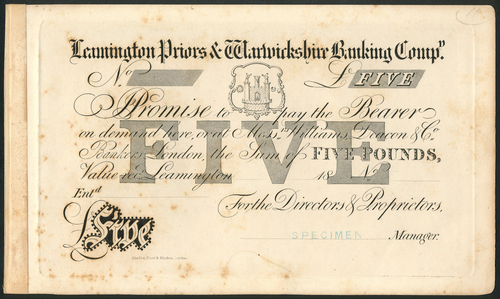 Leamington Priors & Warwickshire Banking Compy.
No. £ FIVE
I Promise to pay the Bearer
on demand here, or at Messrs. Williams, Deacon & Co.
Bankers London, the Sum of FIVE POUNDS,
Value recd. Leamington 18 No.
FIVE
Entd.
For the Directors & Proprietors.
£Five
SPECIMEN Manager.